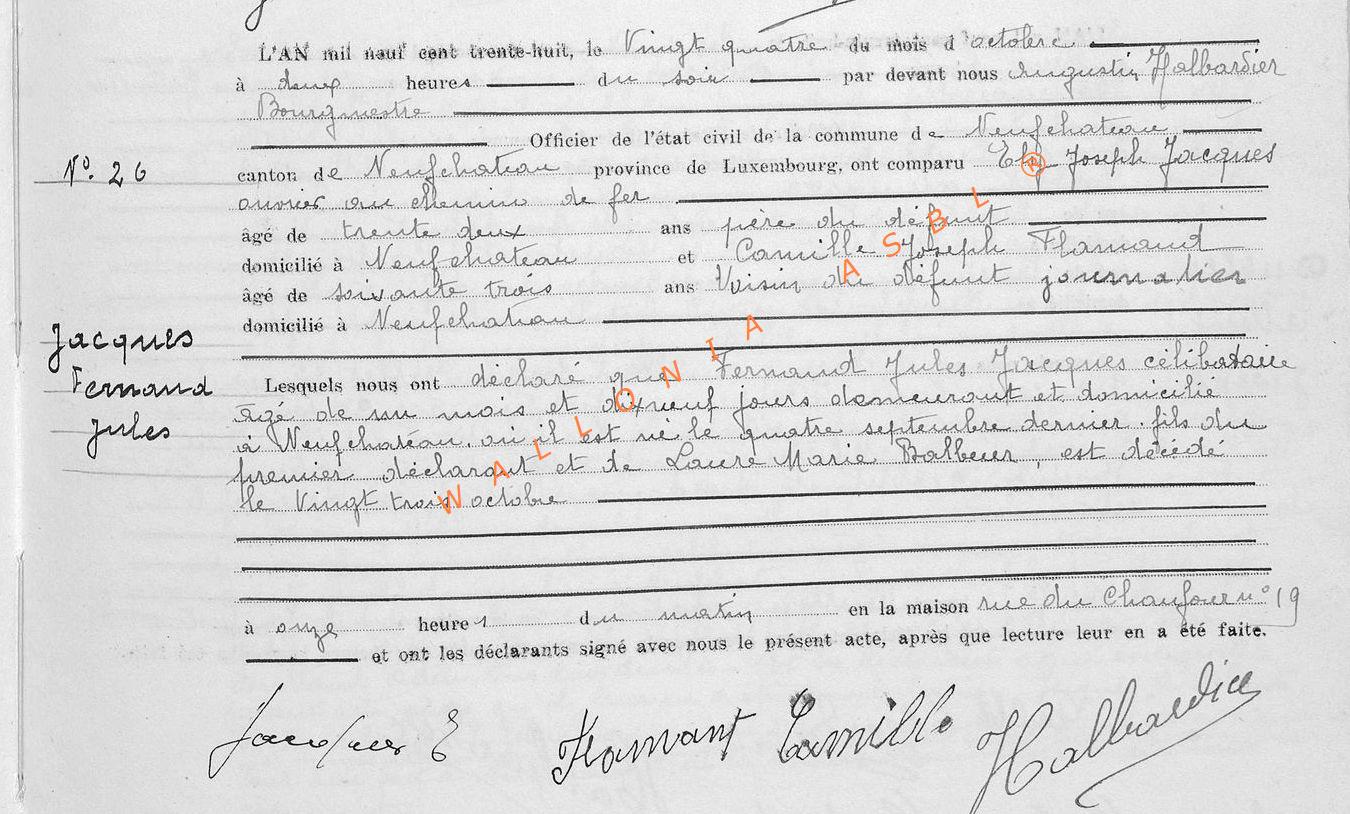 L'AN mil neuf cent trente-huit, le Vingt quatre du mois d'octobre
à deux heures du soir par devant nous Augustin Halbardier
Bourgmestre
Officier de l'état civil de la commune de Neufchateau,
N° 26
canton de Neufchateau province de Luxembourg, ont comparu Joseph Jacques
ouvrier au chemin de fer
âgé de trente deux ans père du défunt
domicilié à Neufchateau et Camille Joseph Flamand
âgé de soixante trois ans Voisin du défunt journalier
domicilié à Neufchateau
Jacques
Fernand
Jules
Lesquels nous ont déclaré que Fernand Jules Jacques célibataire
âgé de un mois et dixneuf jours demeurant et domicilié
à Neufchateau, où il est né le quatre septembre dernier. fils du
premier déclarant et de Laure Marie Balbeur, est décédé
le Vingt trois octobre
à onze heures du matin en la maison rue du Chaufour n° 19
et ont les déclarants signé avec nous le présent acte, après que lecture leur en a été faite.
Jacques E Flamant Camille Halbardier
WALLONIA ASBL ®